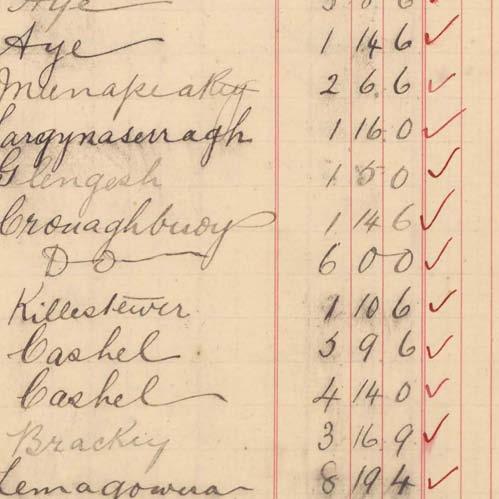 Aye
Aye 1 14 6 ✓
Meenapeakey 2 6. 6 ✓
argynaserragh 1 16. 0 ✓
Glengesh 1 5 0 ✓
Crouaghbuoy 1 14 6 ✓
D O 6 0 0 ✓
Killestewer 1 10 6 ✓
Cashel 5 9 6 ✓
Cashel 4 14 0 ✓
Brackey 3 16. 9 ✓
Lemagowra 8 19 4 ✓